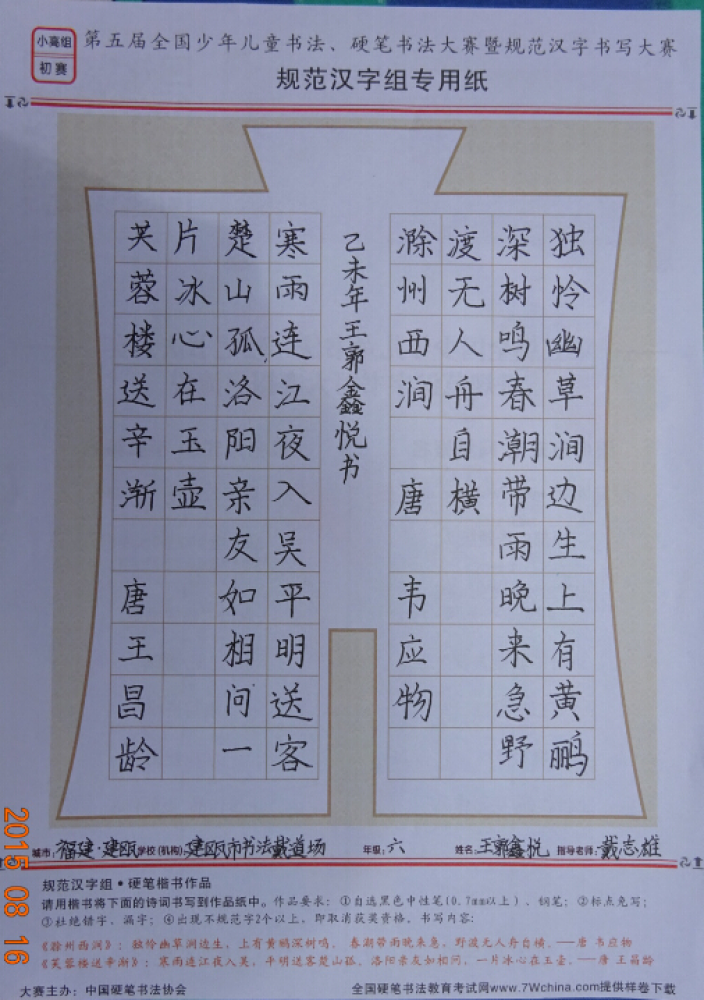 小高组
初赛
第五届全国少年儿童书法、硬笔书法大赛暨规范汉字书写大赛
规范汉字组专用纸
独怜幽草涧边生上有黄鹂
深树鸣春潮带雨晚来急野
渡无人舟自横
滁州西涧 唐 韦应物
乙未年王郭鑫悦书
寒雨连江夜入吴平明送客
楚山孤洛阳亲友如相问一
片冰心在玉壶
芙蓉楼送辛渐 唐王昌龄
城市：福建·建瓯 学校(机构)：建瓯市书法戴道场 年级：六 姓名：王郭鑫悦 指导老师：戴志雄
规范汉字组·硬笔楷书作品
请用楷书将下面的诗词书写到作品纸中。作品要求：①自选黑色中性笔(0.7mm以上)、钢笔；②标点免写；
③杜绝错字、漏字；④出现不规范字2个以上，即取消获奖资格。书写内容：
《滁州西涧》：独怜幽草涧边生，上有黄鹂深树鸣。春潮带雨晚来急，野渡无人舟自横。——唐 韦应物
《芙蓉楼送辛渐》：寒雨连江夜入吴，平明送客楚山孤。洛阳亲友如相问，一片冰心在玉壶。——唐 王昌龄
大赛主办：中国硬笔书法协会 全国硬笔书法教育考试网www.7Wchina.com提供样卷下载
2015 08 16